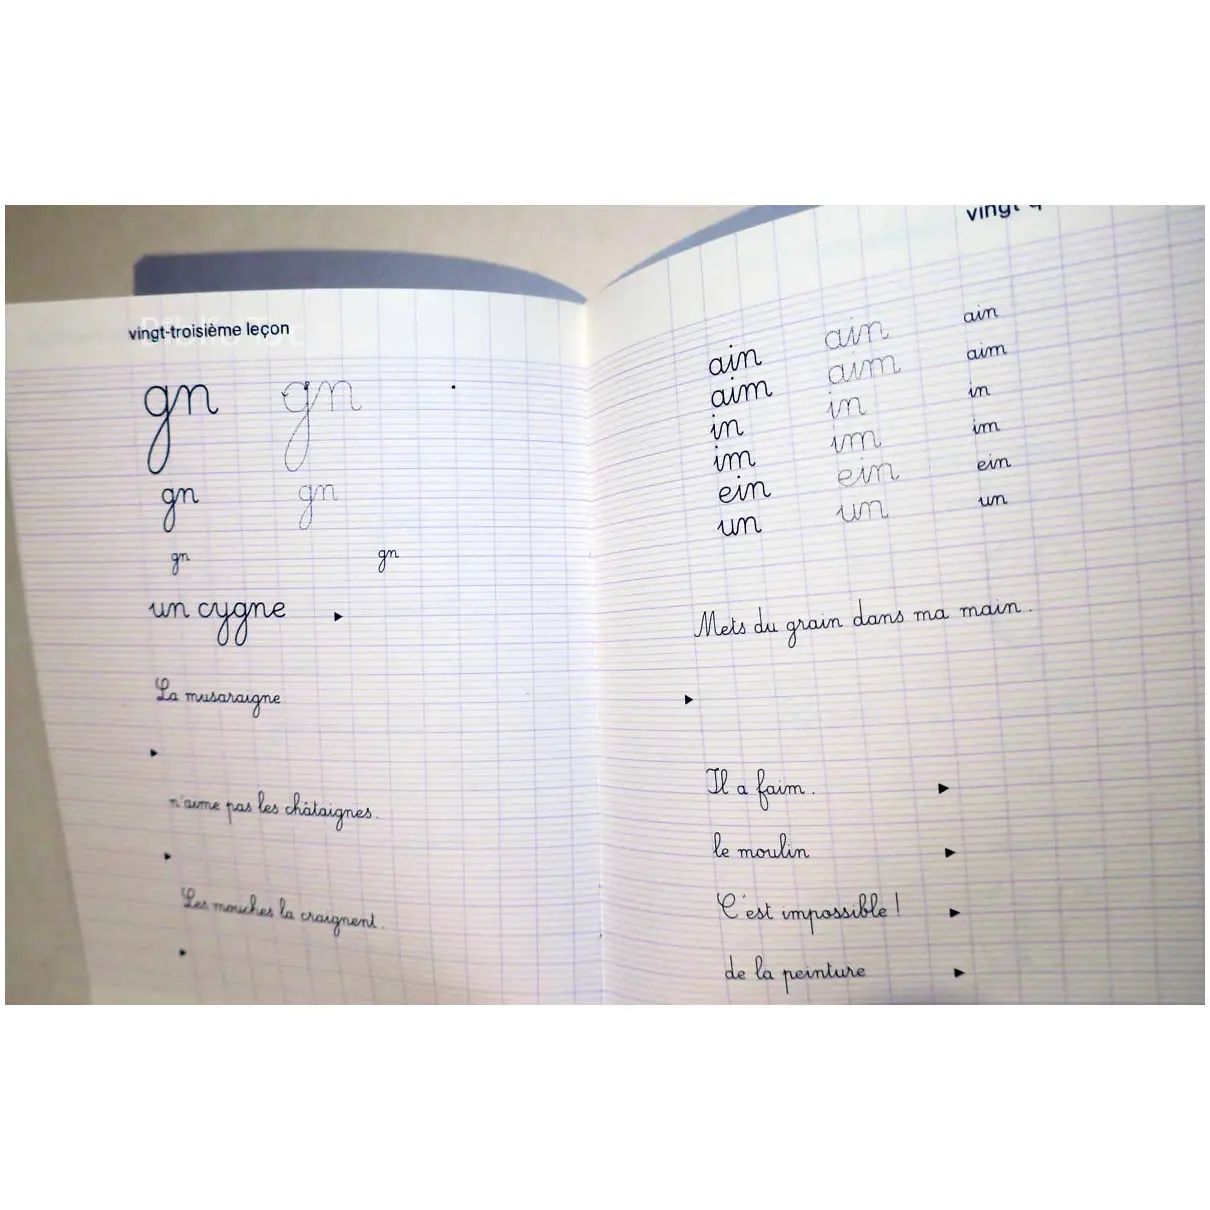 vingt-troisième leçon
gn gn
gn gn
gn gn
un cygne
La musaraigne
n'aime pas les châtaignes.
Les mouches la craignent.
ain ain ain
aim aim aim
in in in
im im im
ein ein ein
un un un
Mets du grain dans ma main.
Il a faim.
le moulin
C'est impossible !
de la peinture